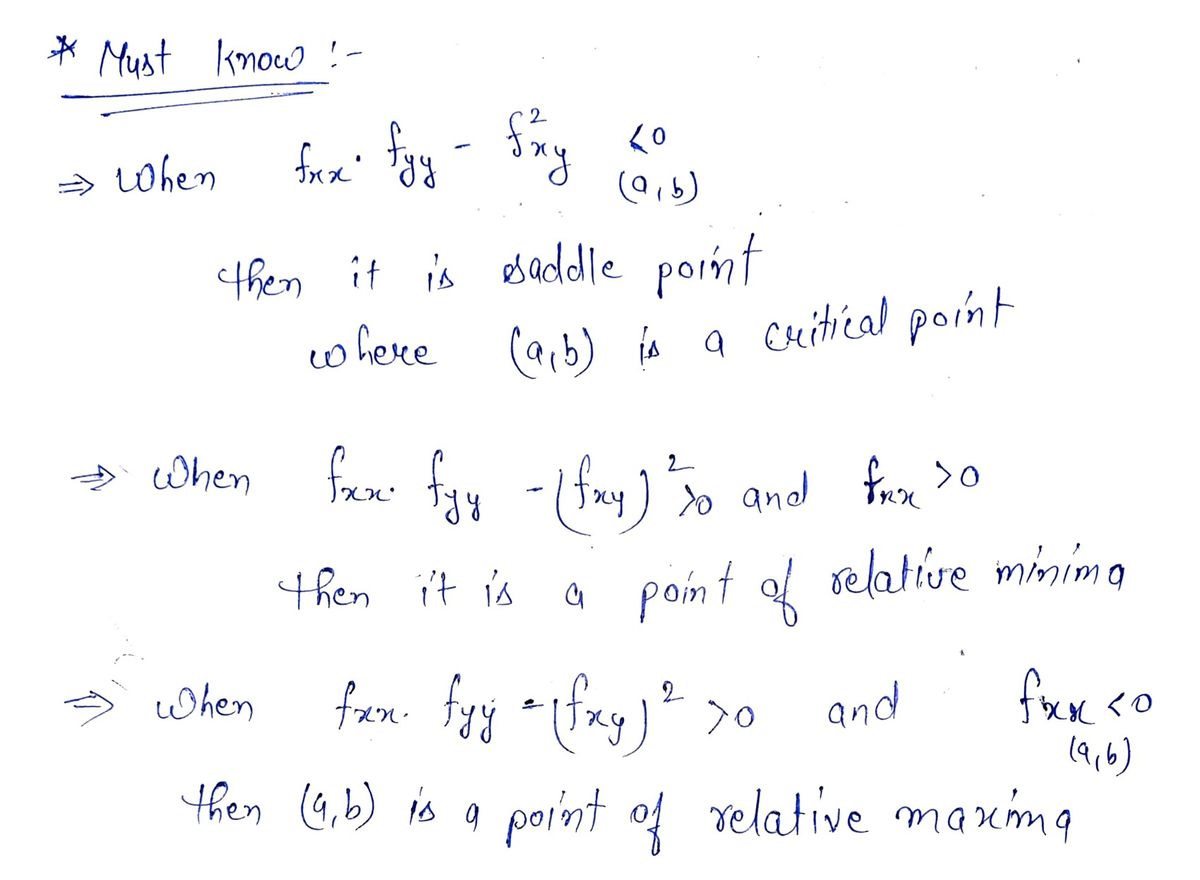 * Must Know :-
⇒ When fxx · fyy - f²xy <0 (a,b)
then it is saddle point
where (a,b) is a critical point
⇒ When fxx · fyy - (fxy)² >0 and fxx >0
then it is a point of relative minima
⇒ When fxx · fyy - (fxy)² >0 and fxx <0 (a,b)
then (a,b) is a point of relative maxima